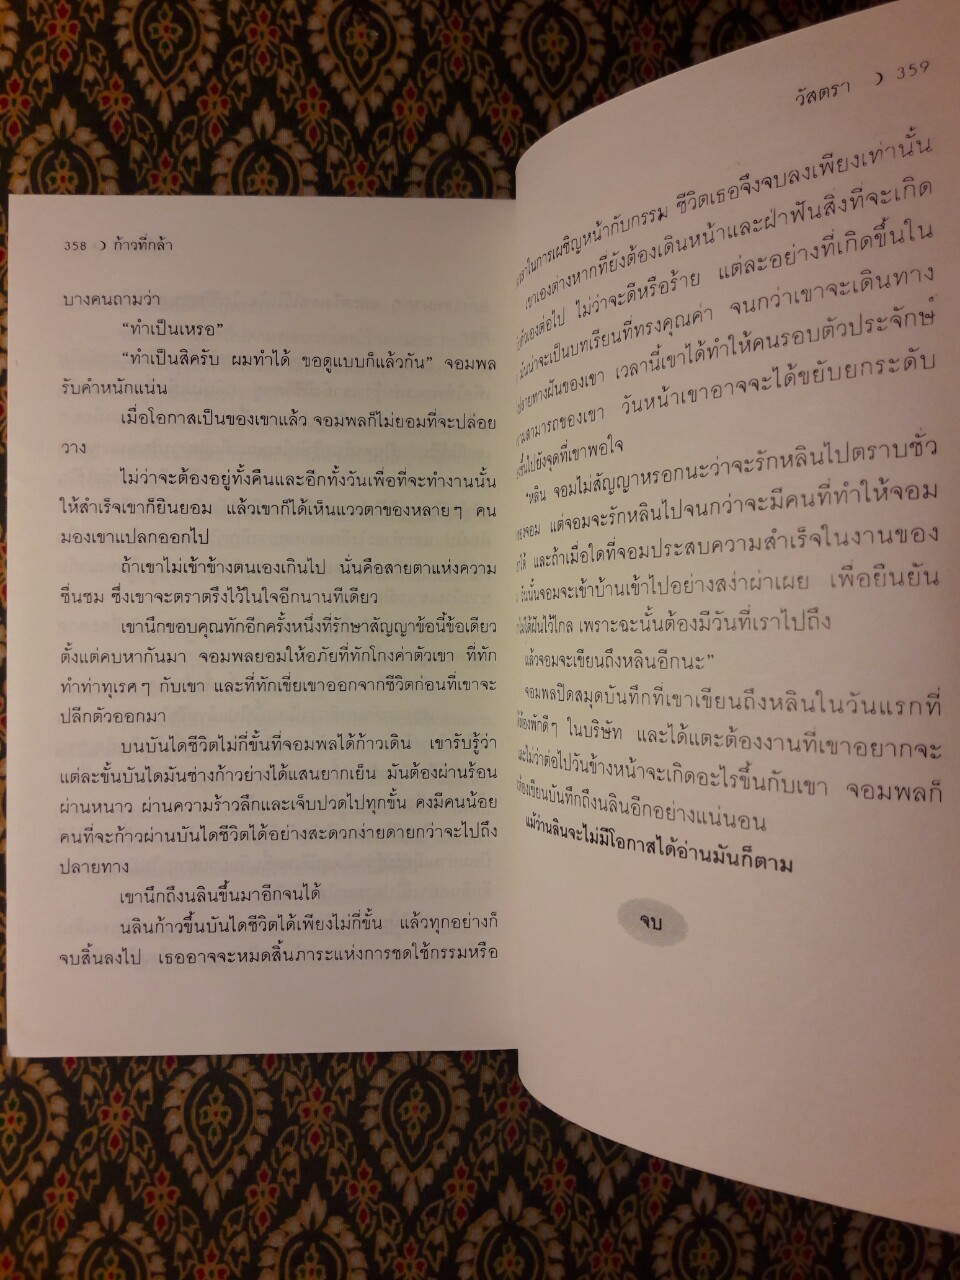 358 ก้าวที่กล้า
บางคนถามว่า
“ทำเป็นเหรอ”
“ทำเป็นสิครับ ผมทำได้ ขอดูแบบก็แล้วกัน” จอมพล
รับคำหนักแน่น
เมื่อโอกาสเป็นของเขาแล้ว จอมพลก็ไม่ยอมที่จะปล่อย
วาง
ไม่ว่าจะต้องอยู่ทั้งคืนและอีกทั้งวันเพื่อที่จะทำงานนั้น
ให้สำเร็จเขาก็ยินยอม แล้วเขาก็ได้เห็นแววตาของหลายๆ คน
มองเขาแปลกออกไป
ถ้าเขาไม่เข้าข้างตนเองเกินไป นั่นคือสายตาแห่งความ
ชื่นชม ซึ่งเขาจะตราตรึงไว้ในใจอีกนานทีเดียว
เขานึกขอบคุณทักอีกครั้งหนึ่งที่รักษาสัญญาข้อนี้ข้อเดียว
ตั้งแต่คบหากันมา จอมพลยอมให้อภัยที่ทักโกงค่าตัวเขา ที่ทัก
ทำท่าทุเรศๆ กับเขา และที่ทักเขี่ยเขาออกจากชีวิตก่อนที่เขาจะ
ปลีกตัวออกมา
บนบันไดชีวิตไม่กี่ขั้นที่จอมพลได้ก้าวเดิน เขารับรู้ว่า
แต่ละขั้นบันไดมันช่างก้าวย่างได้แสนยากเย็น มันต้องผ่านร้อน
ผ่านหนาว ผ่านความร้าวลึกและเจ็บปวดไปทุกขั้น คงมีคนน้อย
คนที่จะก้าวผ่านบันไดชีวิตได้อย่างสะดวกง่ายดายกว่าจะไปถึง
ปลายทาง
เขานึกถึงนลินขึ้นมาอีกจนได้
นลินก้าวขึ้นบันไดชีวิตได้เพียงไม่กี่ขั้น แล้วทุกอย่างก็
จบสิ้นลงไป เธออาจจะหมดสิ้นภาระแห่งการชดใช้กรรมหรือ
วัสตรา 359
ในการเผชิญหน้ากับกรรม ชีวิตเธอจึงจบลงเพียงเท่านั้น
เขาเองต่างหากที่ยังต้องเดินหน้าและฝ่าฟันสิ่งที่จะเกิด
ตัวเองต่อไป ไม่ว่าจะดีหรือร้าย แต่ละอย่างที่เกิดขึ้นใน
มันน่าจะเป็นบทเรียนที่ทรงคุณค่า จนกว่าเขาจะเดินทาง
ปลายทางฝันของเขา เวลานี้เขาได้ทำให้คนรอบตัวประจักษ์
สามารถของเขา วันหน้าเขาอาจจะได้ขยับยกระดับ
ขึ้นไปยังจุดที่เขาพอใจ
“หลิน จอมไม่สัญญาหรอกนะว่าจะรักหลินไปตราบชั่ว
ของจอม แต่จอมจะรักหลินไปจนกว่าจะมีคนที่ทำให้จอม
ได้ และถ้าเมื่อใดที่จอมประสบความสำเร็จในงานของ
วันนั้นจอมจะเข้าบ้านเข้าไปอย่างสง่าผ่าเผย เพื่อยืนยัน
ไม่ได้ฝันไว้ไกล เพราะฉะนั้นต้องมีวันที่เราไปถึง
แล้วจอมจะเขียนถึงหลินอีกนะ”
จอมพลปิดสมุดบันทึกที่เขาเขียนถึงหลินในวันแรกที่
ห้องพักดีๆ ในบริษัท และได้แตะต้องงานที่เขาอยากจะ
และไม่ว่าต่อไปวันข้างหน้าจะเกิดอะไรขึ้นกับเขา จอมพลก็
ต้องเขียนบันทึกถึงนลินอีกอย่างแน่นอน
แม้ว่านลินจะไม่มีโอกาสได้อ่านมันก็ตาม
จบ